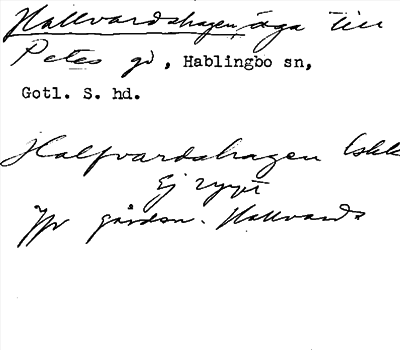 Hallvardshagen, äga till
Petes gd, Hablingbo sn,
Gotl. S. hd.
Halfvardshagen
Ej
Jfr gården Hallvards